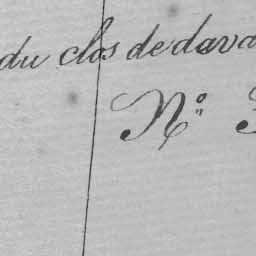 du clos de dava
N°